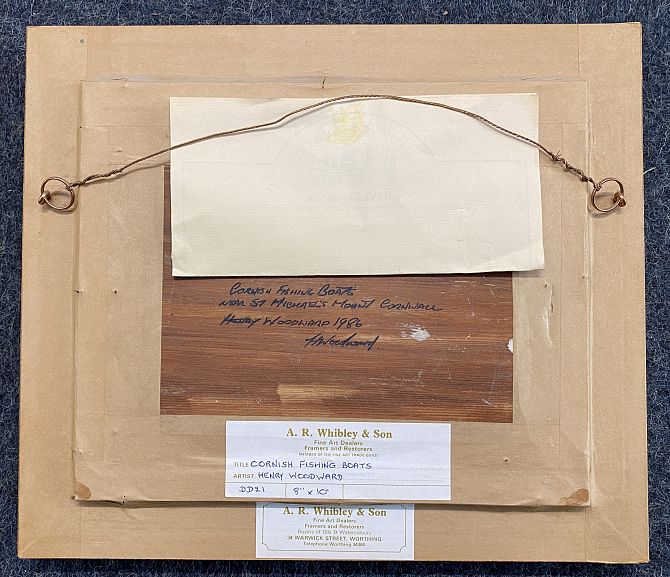 CORNISH FISHING BOATS
NEAR ST MICHAEL'S MOUNT CORNWALL
HENRY WOODWARD 1986
HWoodward.
A. R. Whibley & Son
Fine Art Dealers
Framers and Restorers
MEMBER OF THE FINE ART TRADE GUILD
TITLE CORNISH FISHING BOATS
ARTIST HENRY WOODWARD
DD21 8" x 10"
A. R. Whibley & Son
Fine Art Dealers
Framers and Restorers
Buyers of Oils & Watercolours
34 WARWICK STREET, WORTHING
Telephone Worthing